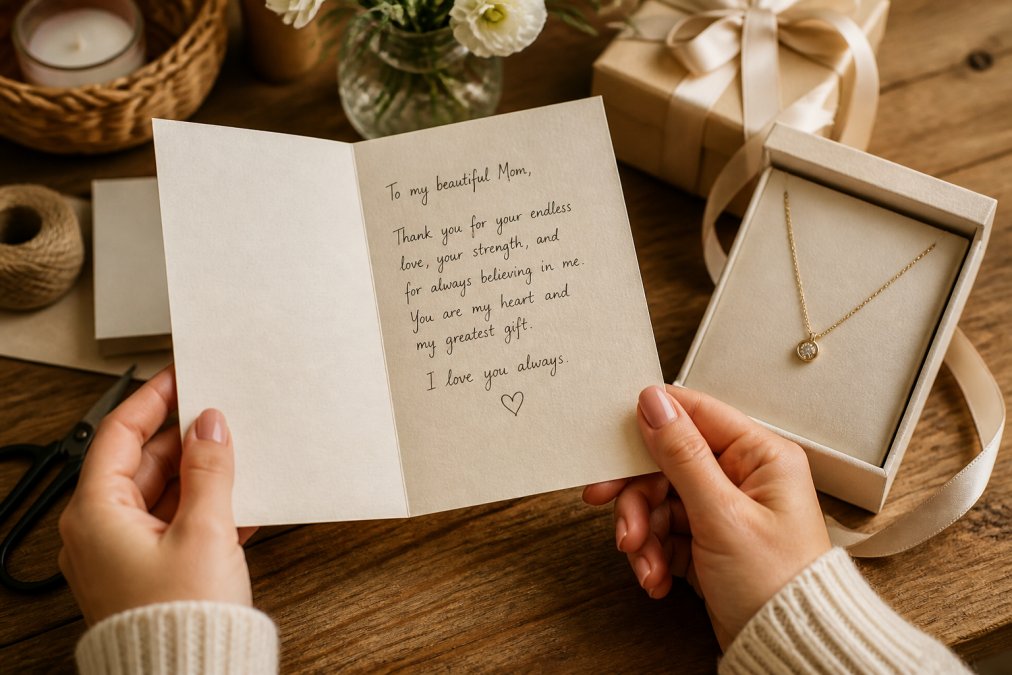 To my beautiful Mom,
Thank you for your endless
love, your strength, and
for always believing in me.
You are my heart and
my greatest gift.
I love you always.